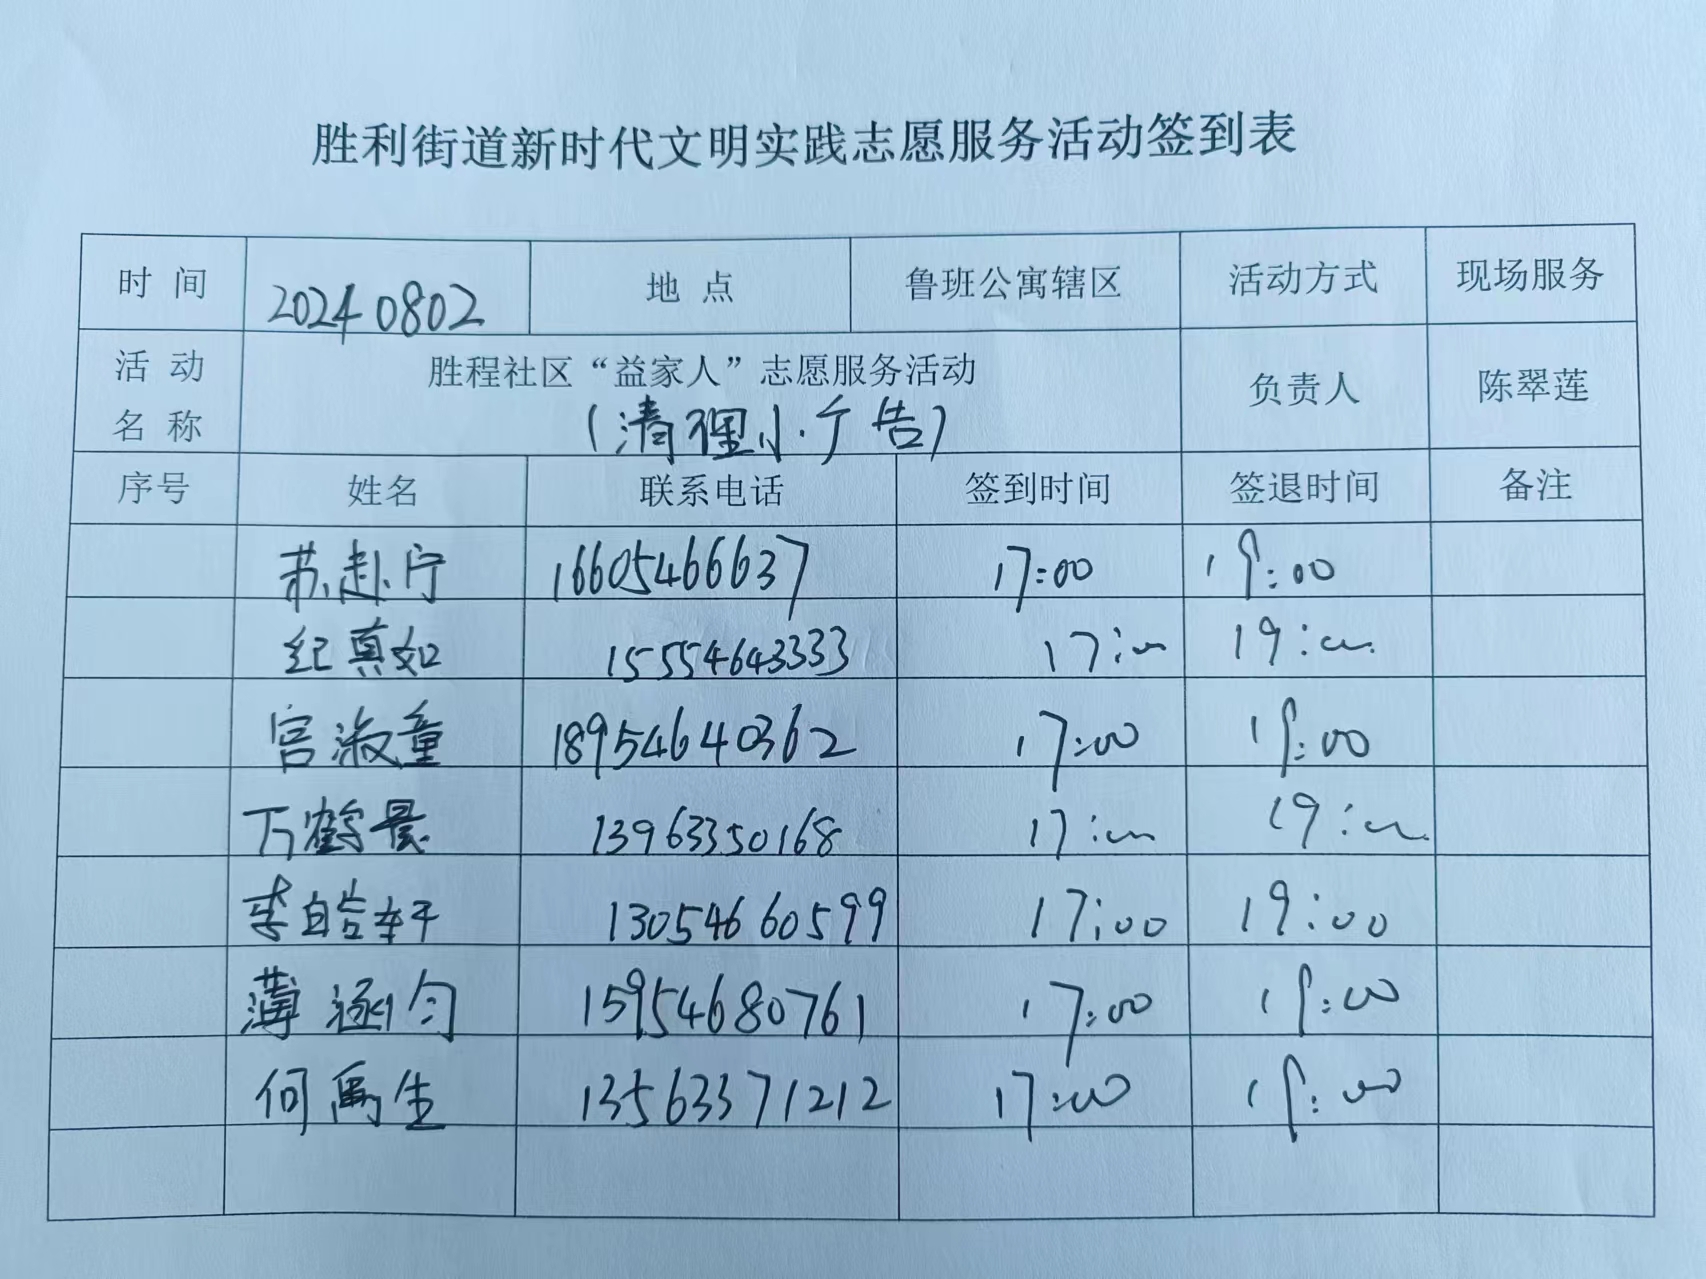 胜利街道新时代文明实践志愿服务活动签到表
时 间 20240802 地 点 鲁班公寓辖区 活动方式 现场服务
活 动 名 称 胜程社区“益家人”志愿服务活动 负责人 陈翠莲
(清理小广告)
序号 姓名 联系电话 签到时间 签退时间 备注
苏赴宁 16605466637 17:00 19:00
纪真如 15554643333 17:00 19:00
宫淑童 18954640362 17:00 19:00
万鹤晨 13963350168 17:00 19:00
李皓轩 13054660599 17:00 19:00
薄涵匀 15954680761 17:00 19:00
何禹生 13563371212 17:00 19:00